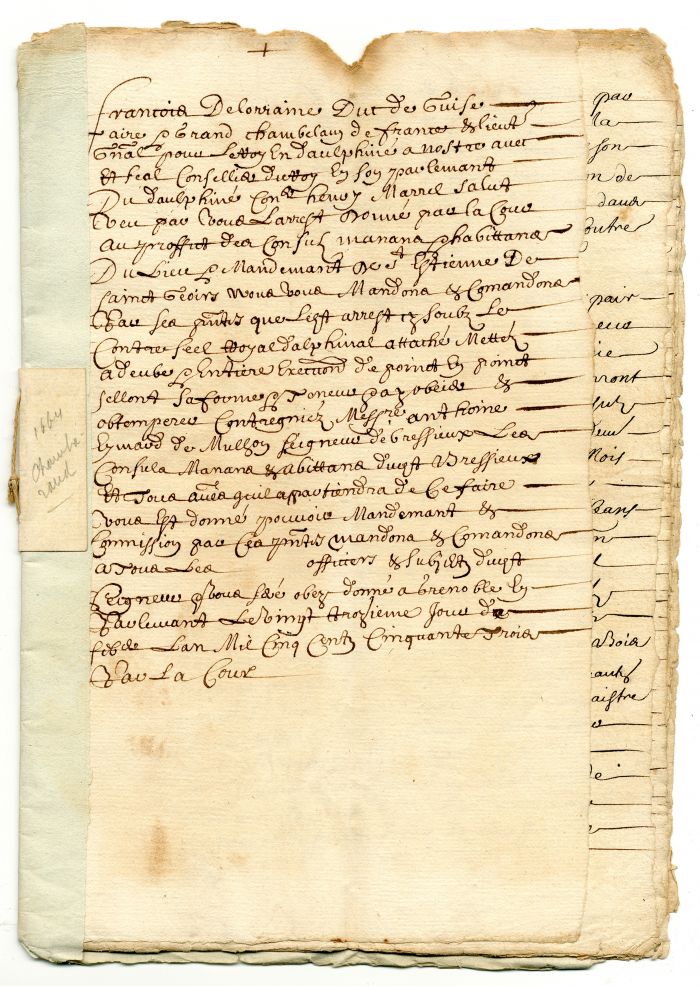 +
francois Delorraine Duc de Guise
paire & Grand chambelain de france & lieut
gnãl pour le Roy En daulphiné a nostre amé
Et feal Conseiller du Roy En son parlemant
Du daulphiné Con henry Marrel salut
veu par Nous Larrest donné par la Cour
au proffit des Consulz manans & habittans
Du Lieu & Mandemant De st Estienne De
sainct Geoirs Nous vous Mandons & Comandons
Par ses pñtes que Ledt arrest cy soubz Le
Contre seel Royal dalphinal attaché Mettés
a deube & Entière Execution de poinct En poinct
sellont sa forme & Teneur par obeir &
obtemperer Contregniez Messre anthoine
Eymard de Mullon seigneur de bressieux Les
Consuls Manans & abittans dudt Bressieux
Et Tous aues quil apartiendra de Ce faire
vous Est donné pouvoir Mandemant &
Commission par Ces pñtes mandons & Comandons
a Tous Les officiers & subjetz dudt
Seigneur a Vous feé obey donné a Grenoble En
Parlemant Le Vingt trozieme Jour de
feb Lan Mil Cinq Centz Cinquante Trois
Par La Cour
1664
Chambarand
par
la
son
on de
dans
outre
pair
ront
Mois
Bois
aistre